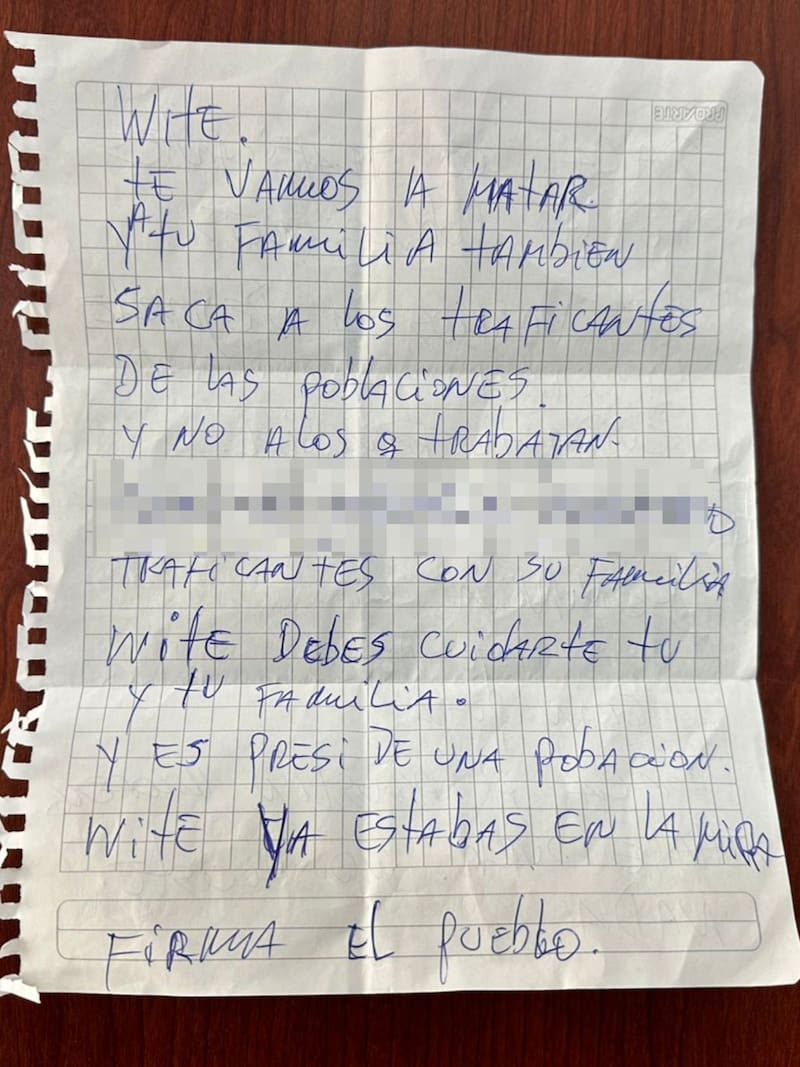 PROARTE
WitE.
tE VAMOS A MATAR.
Y A tU FAMILIA tAMbiEN
SACA A LOS tRAFiCANtES
DE LAS PObLACiONES.
Y NO A LOS Q tRAbAJAN.
D
TRAFICANTES CON SU FAMiLiA
WitE DEbES CUidARtE tU
Y tU FAMiLiA.
Y ES PRESi DE UNA PObACiON.
WitE YA EStAbAS EN LA MiRA
FiRMA EL PUEbLO.